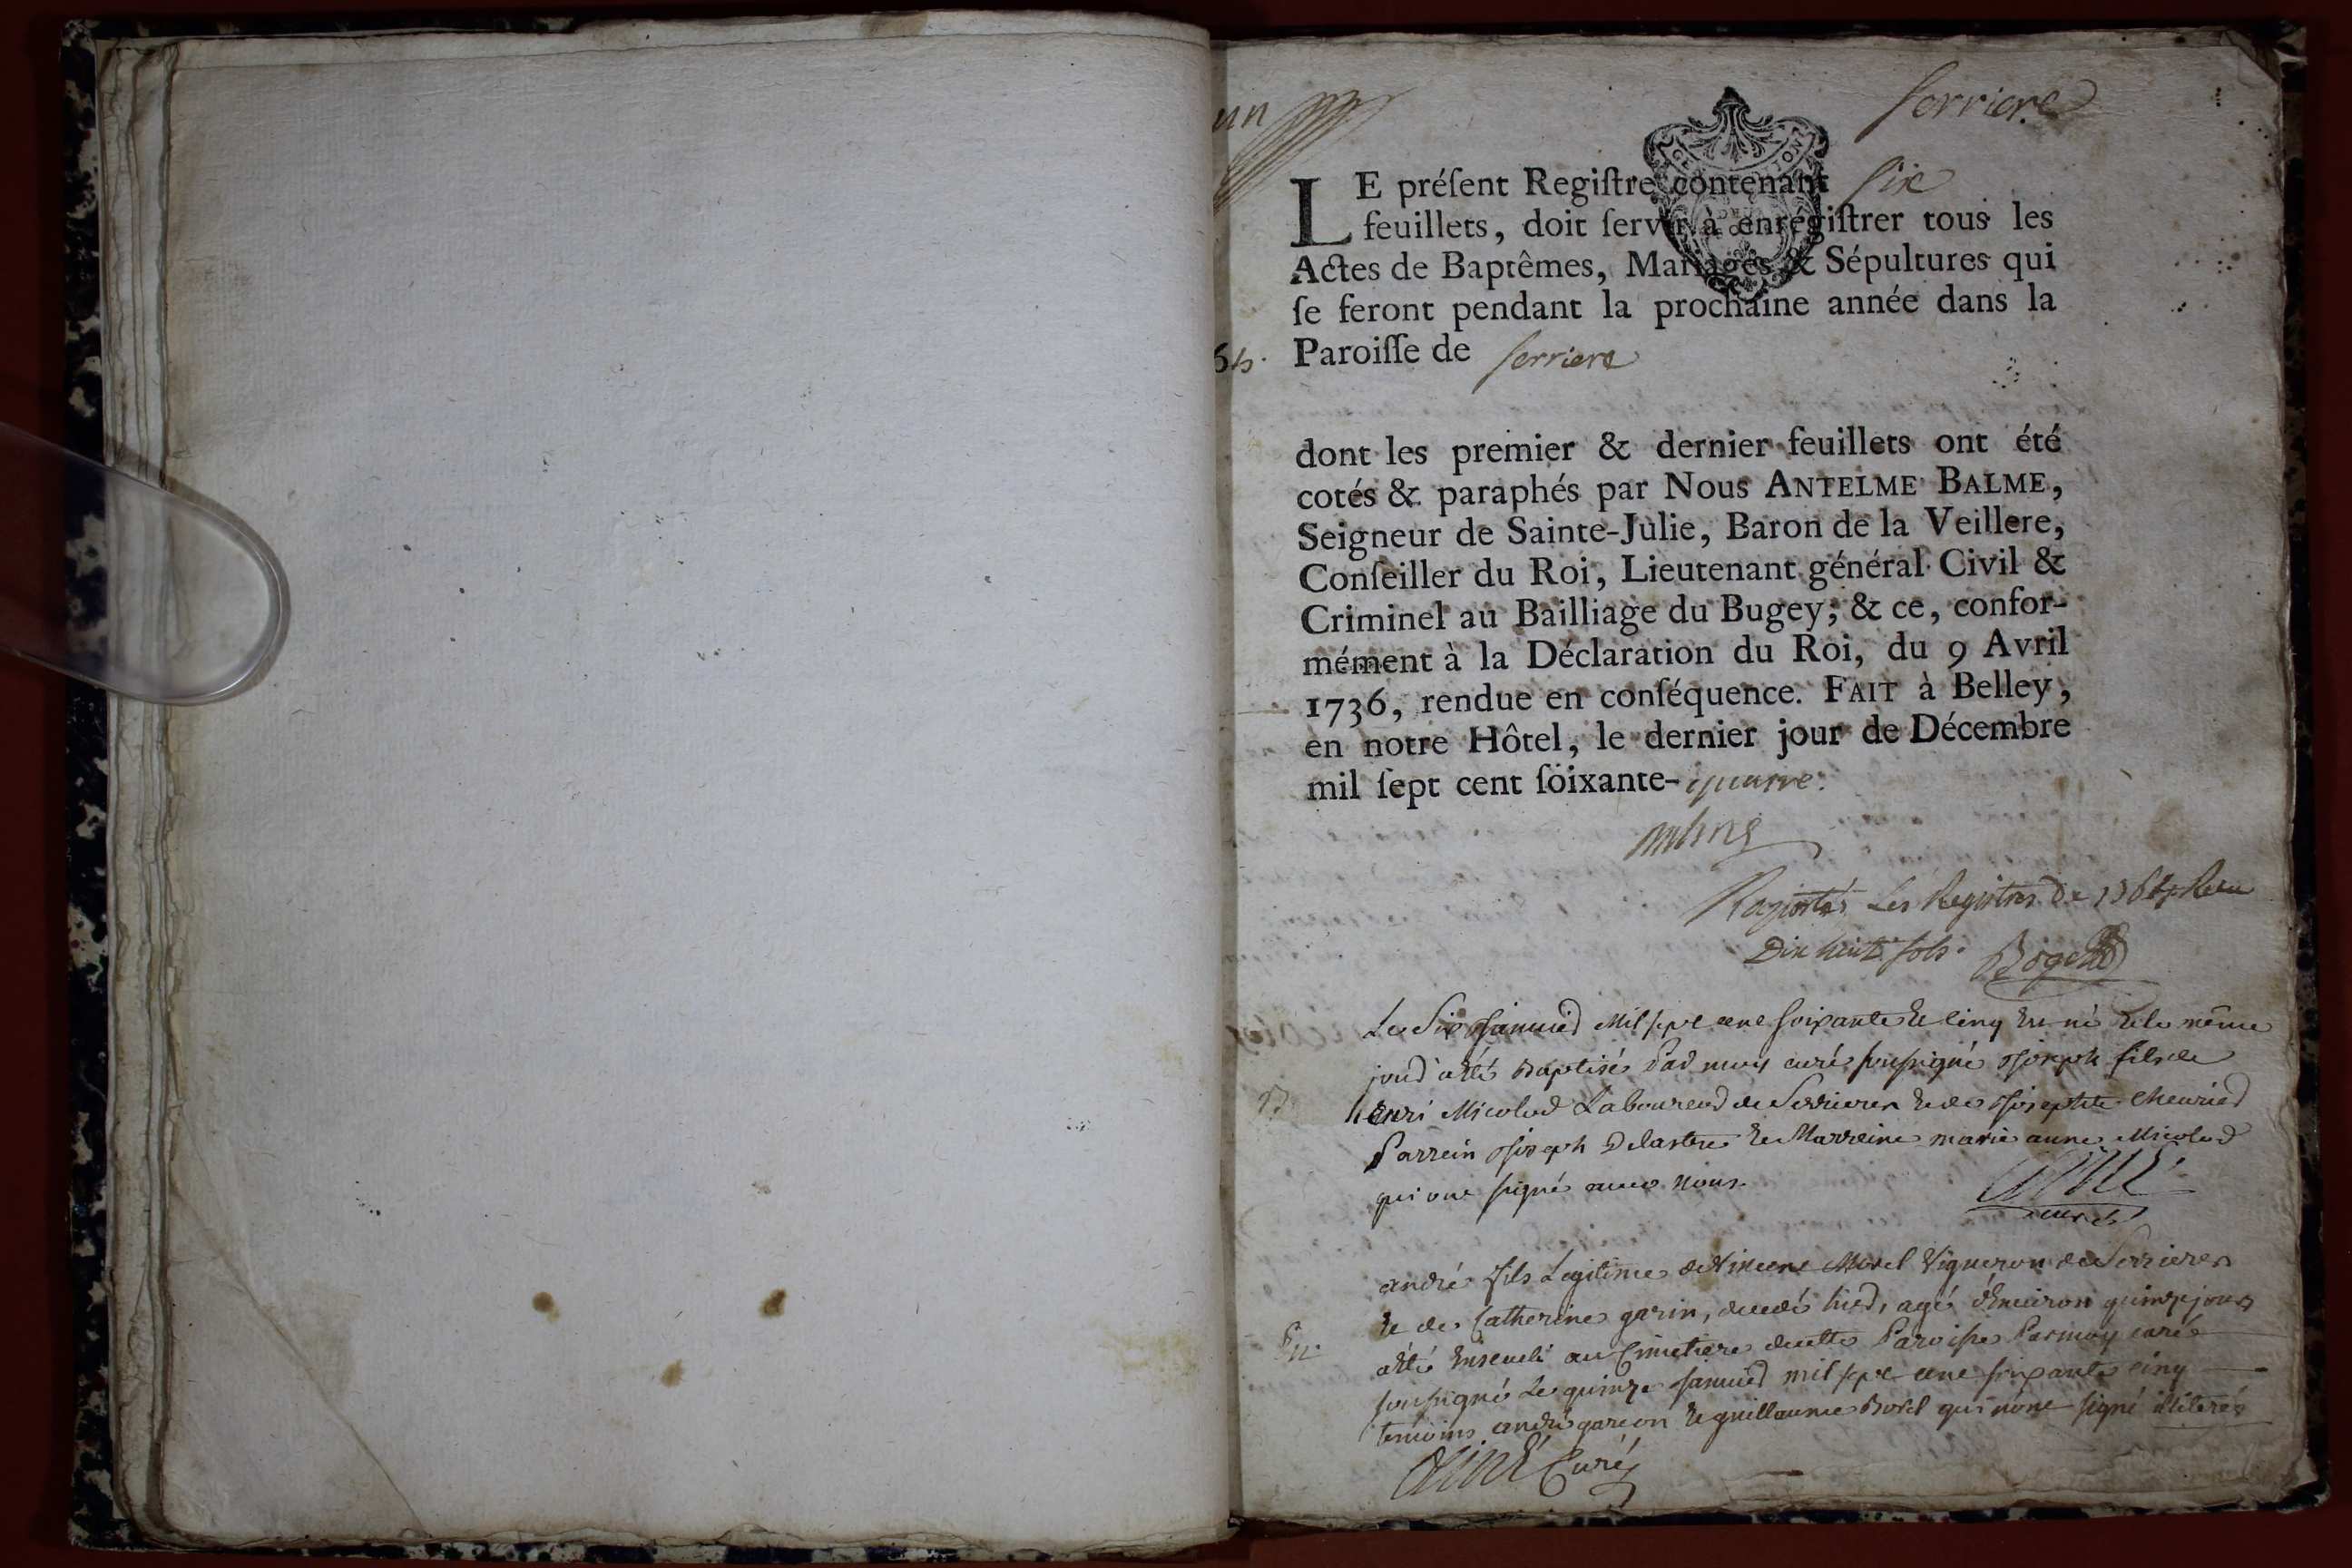 un
serriere
LE préſent Regiſtre contenant six
feuillets, doit ſervir à enrégiſtrer tous les
Actes de Baptêmes, Mariages & Sépultures qui
ſe feront pendant la prochaine année dans la
Paroiſſe de serriere
dont les premier & dernier feuillets ont été
cotés & paraphés par Nous ANTELME BALME,
Seigneur de Sainte-Julie, Baron de la Veillere,
Conſeiller du Roi, Lieutenant général Civil &
Criminel au Bailliage du Bugey; & ce, confor-
mément à la Déclaration du Roi, du 9 Avril
1736, rendue en conſéquence. FAIT à Belley,
en notre Hôtel, le dernier jour de Décembre
mil ſept cent ſoixante-quatre.
Les Registres de 1764
Dix huit sols.
Le Six Janvier Mil sept cent soixante et cinq est né et le même
jour a été Baptisé Par moy curé soussigné Joseph fils de
henri Micolod Laboureur de Serrieres et de Josephte
Parrein Joseph Delastre et Marreine marie anne Micolod
qui ont signé avec nous.
curé
andré fils Legitime de Vincent Morel Vigneron de Serrieres
et de Catherine garin, décédé hier, agé d'Environ quinze jours
a été Enseveli au Cimetiere de cette Paroisse Par moy curé
soussigné Le quinze Janvier mil sept cent soixante cinq
temoins andré garcon et guillaume Borel qui n'ont signé illiterés
Curé